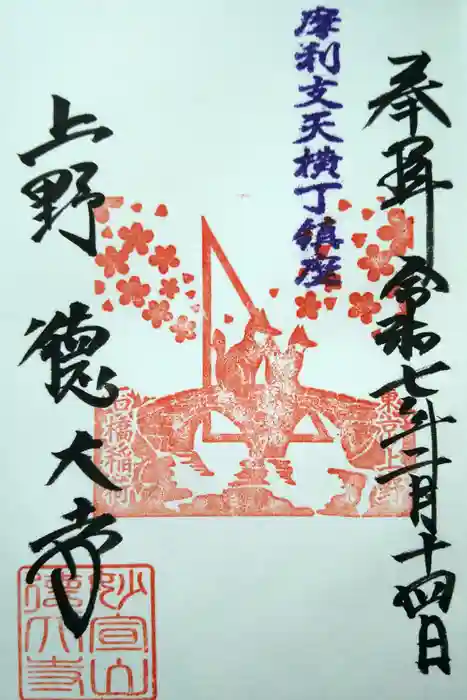 奉拝 令和七年二月十四日
摩利支天横丁鎮座
上野 德大寺
東京上野
石橋稲荷
妙宣山
德大寺